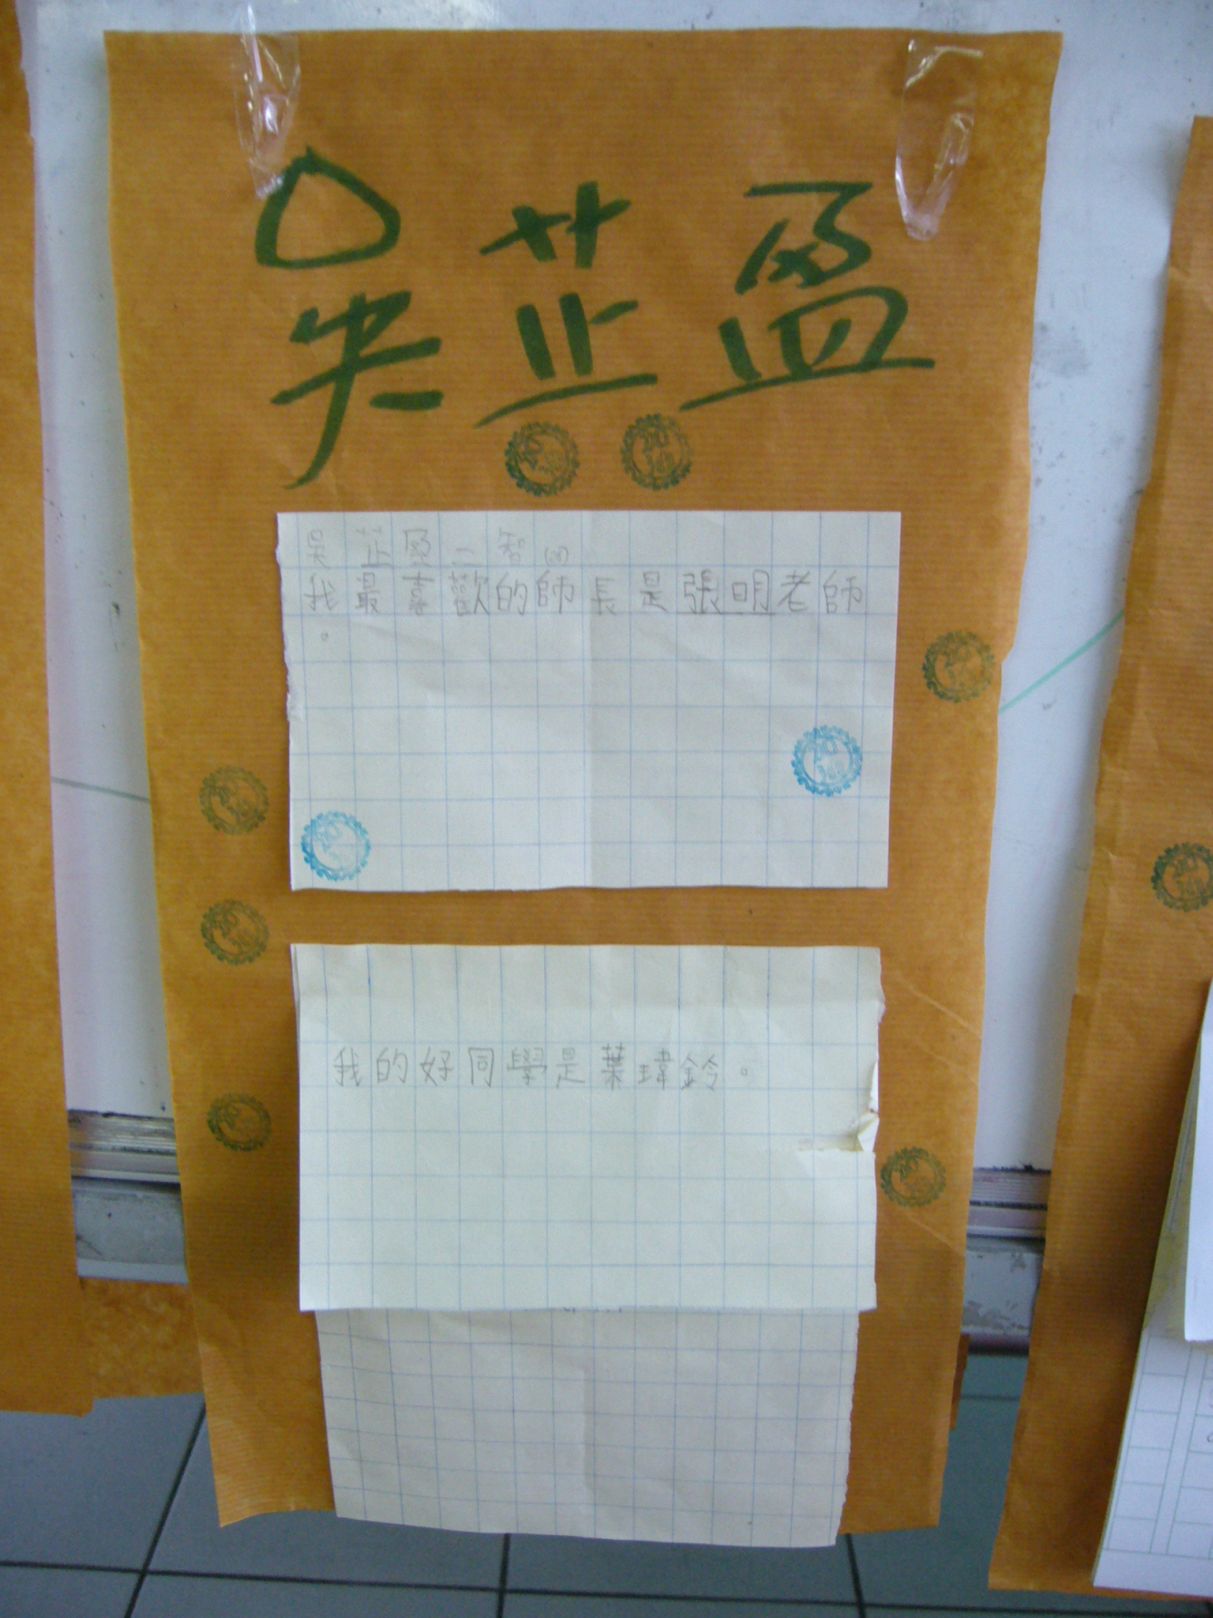 吳芷盈
吳芷盈二智
我最喜歡的師長是張明老師
。
我的好同學是葉瑋鈴。